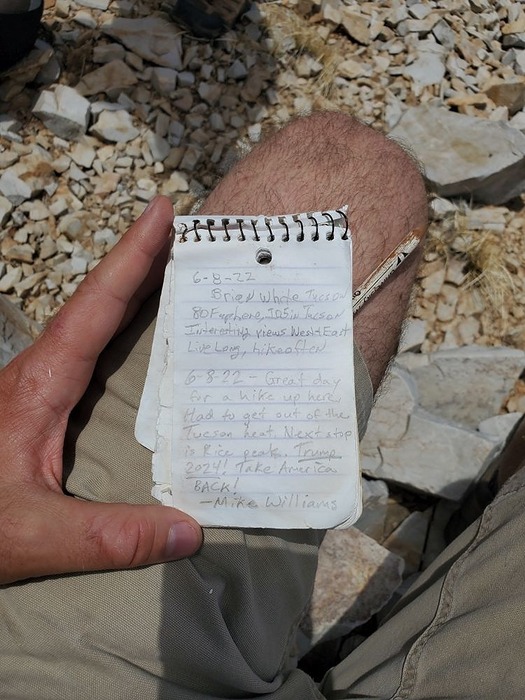 6-8-22
Brian Whole Tucson
80 F up here, 105 in Tucson
Interesting views West+East
Live Long, hike often
6-8-22 - Great day
for a hike up here,
Had to get out of the
Tucson heat. Next stop
is Rice peak. Trump
2024! Take America
BACK!
-Mike Williams